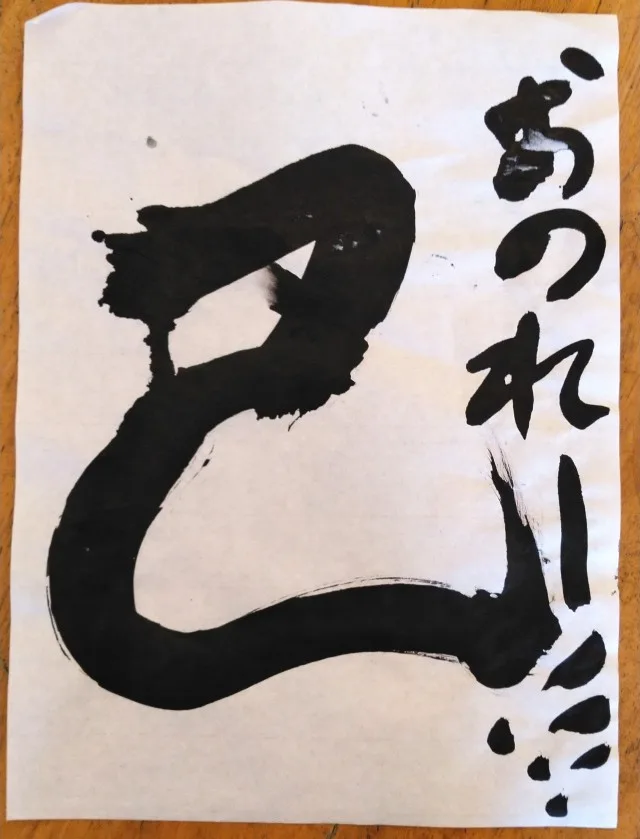 おのれー!!!
己